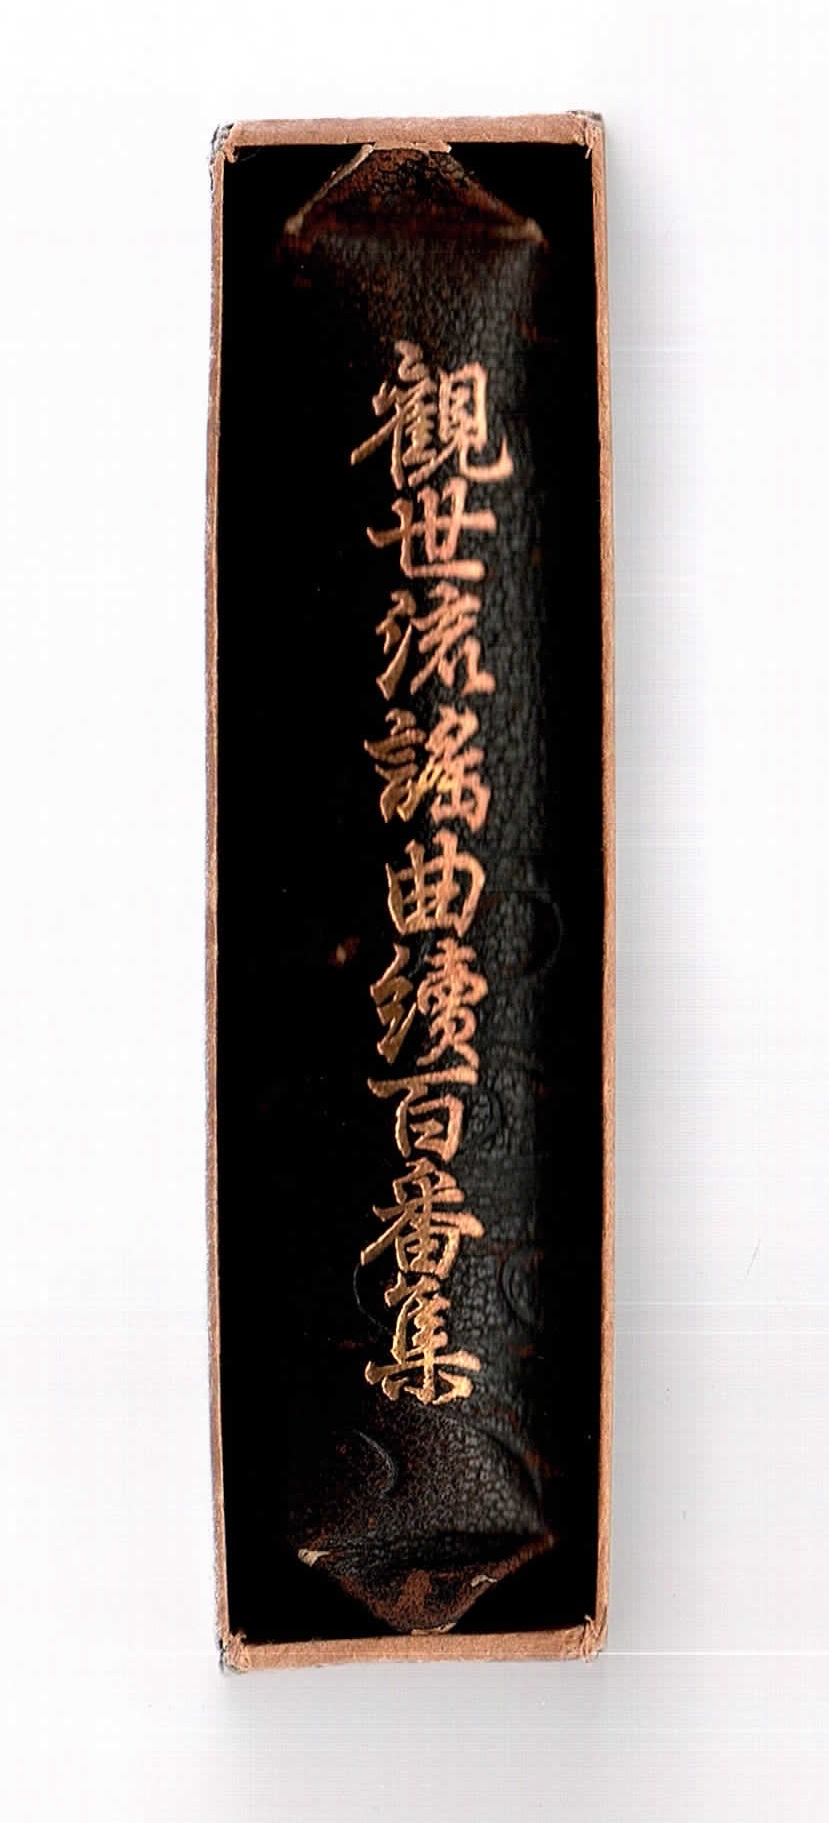 觀世流謠曲續百番集